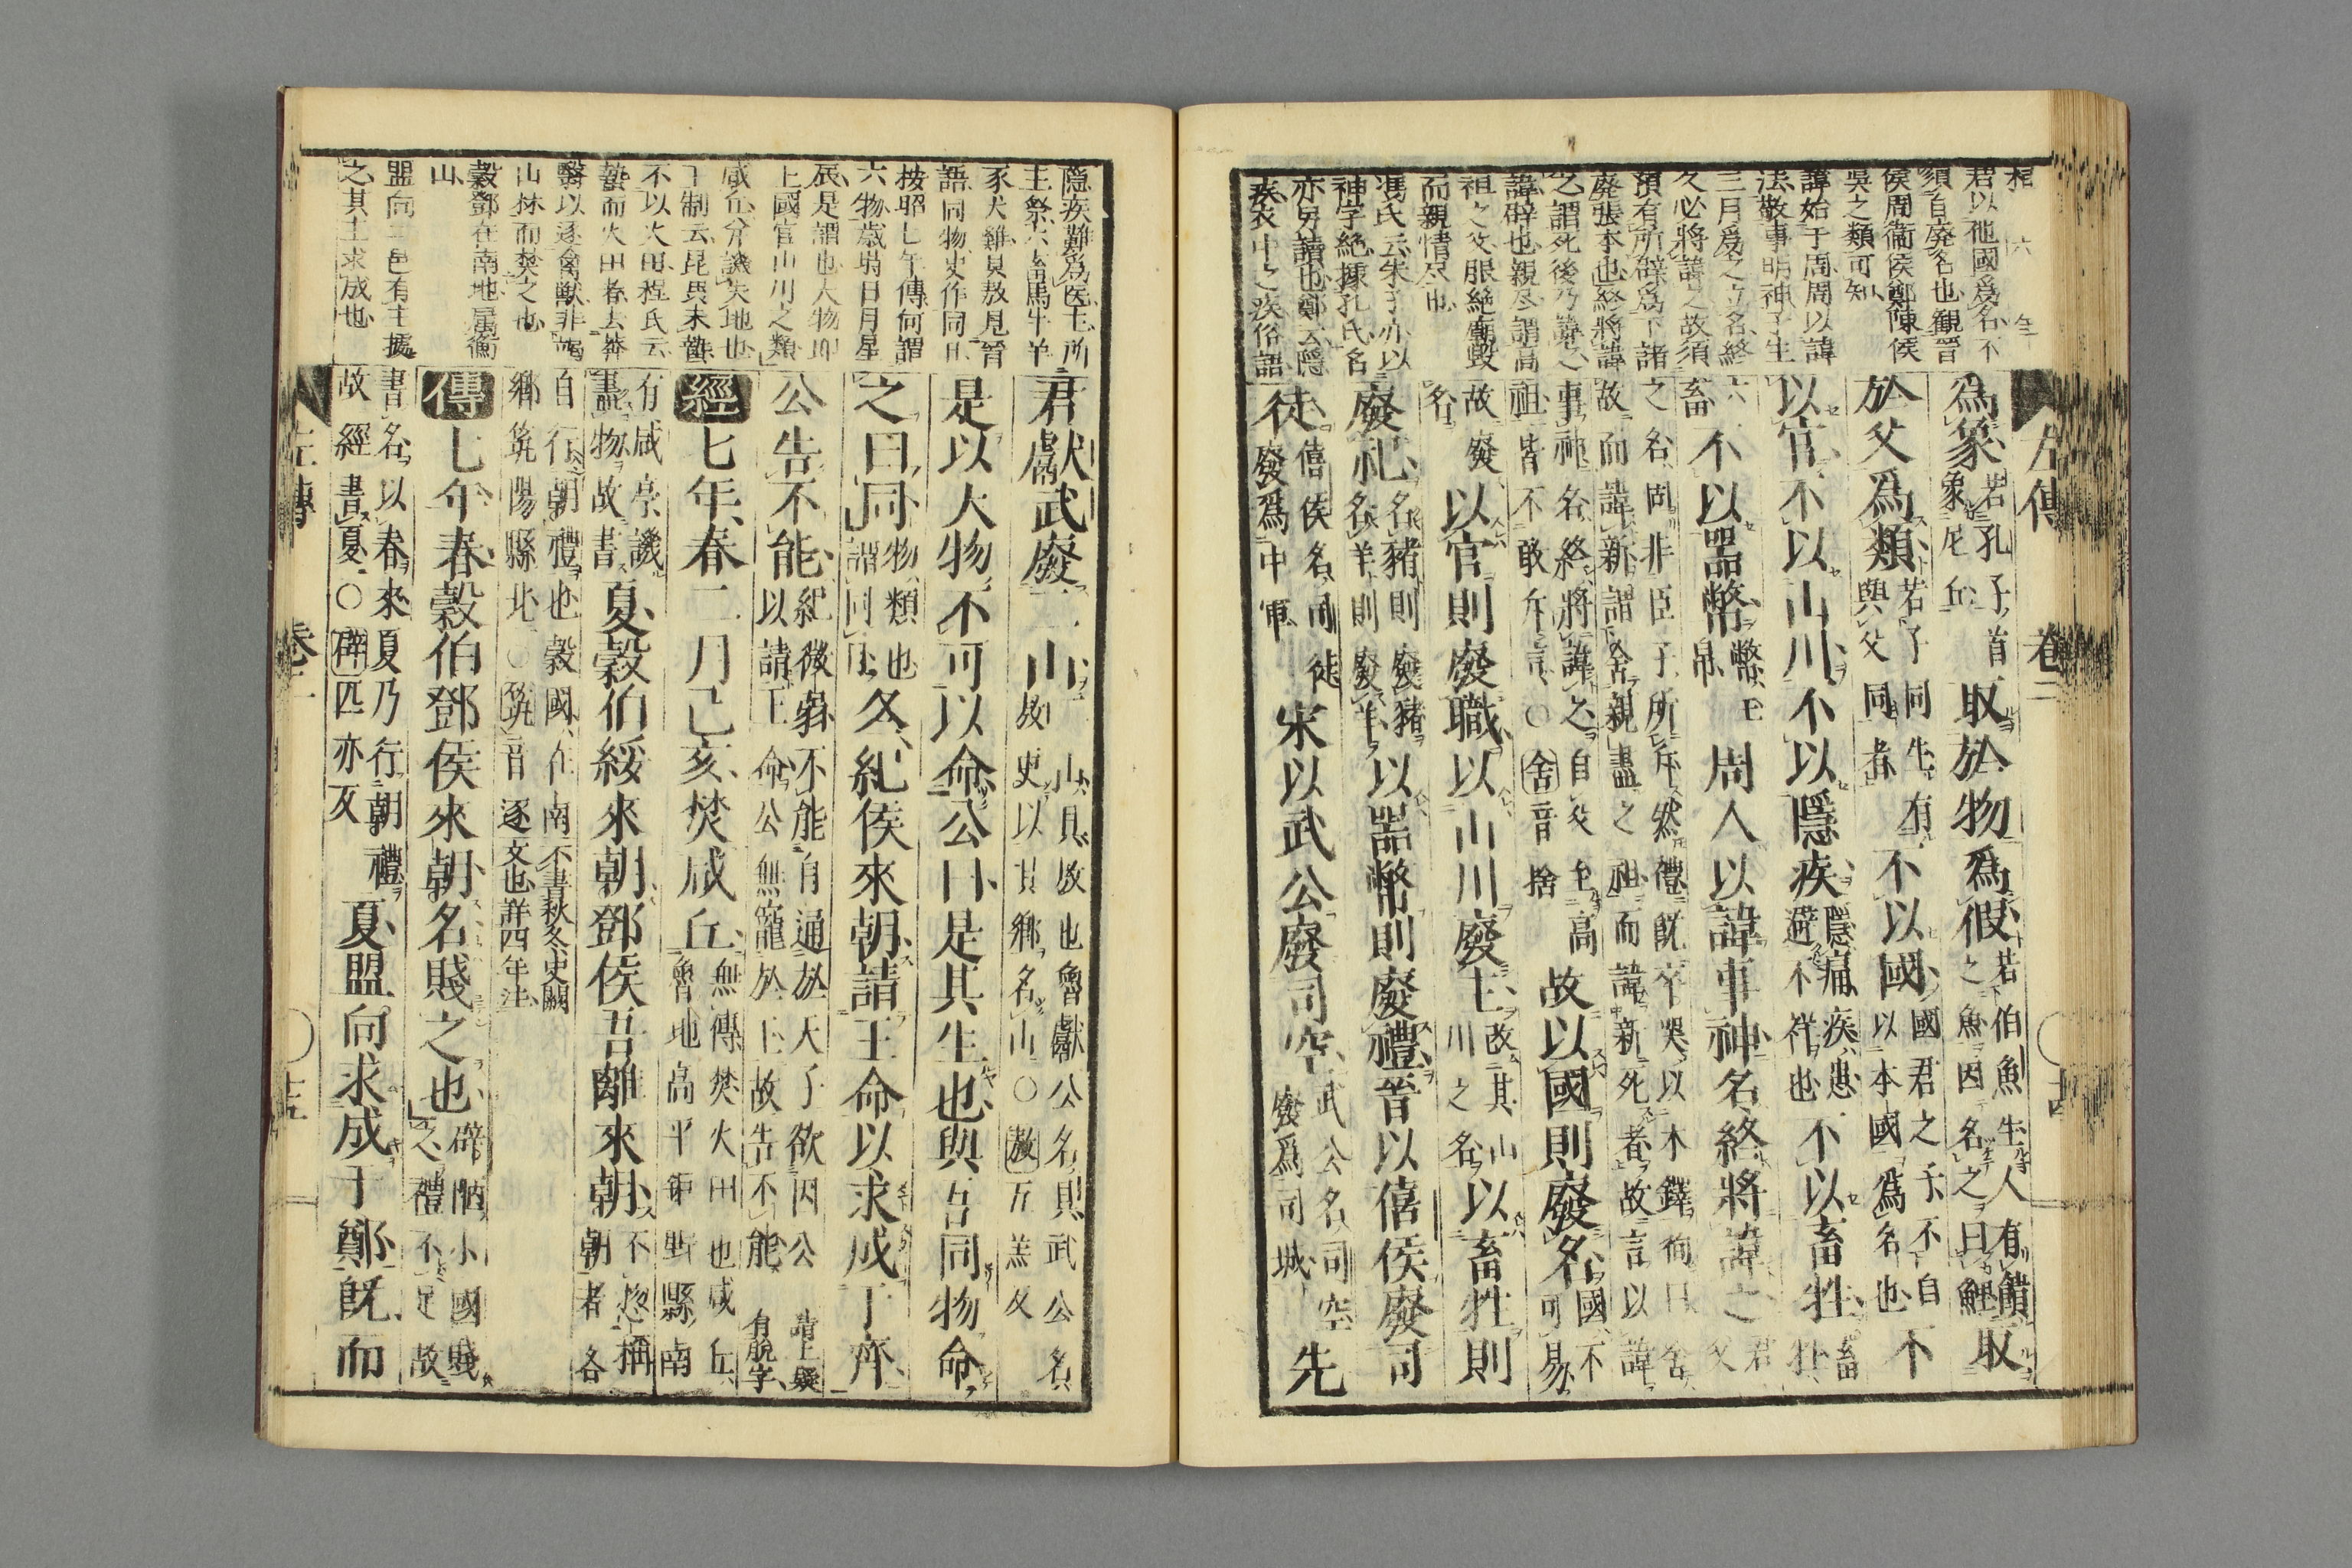 左傳 卷二 十四
君以他國爲名不
須自廢名也観晋
侯周衞侯鄭陳侯
吳之類可知
諱始于周周以諱
法敬事明神子生
三月爲之立名終
久必將諱之故須
預有所辟爲下諸
廢張本也終將諱
之謂死後乃諱之
諱辟也親尽謂高
祖之父服絶廟毀
而親情尽也
馮氏云朱子亦以
神字絶據孔氏名
亦另讀也鄭云隠
疾衣中之疾俗語
爲象若孔子首象尼丘取於物爲假若伯魚生人有饋之魚因名之曰鯉取
於父爲類若子同生有與父同者不以國國君之子不自以本國爲名也不
以官不以山川不以隱疾隱痛疾患避不祥也不以畜牲畜牲
六畜不以器幣幣玉帛周人以諱事神名終將諱之君父
之名固非臣子所斥然禮既卒哭以木鐸徇曰舍
故而諱新謂舍親盡之祖而諱新死者故言以諱
事神名終將諱之自父至高祖皆不敢斥言○舍音捨故以國則廢名國不可易
故廢名以官則廢職以山川廢主改其山川之名以畜牲則
廢祀名豬則廢豬名羊則廢羊以器幣則廢禮晉以僖侯廢司
徒僖侯名司徒廢爲中軍宋以武公廢司空武公名司空廢爲司城先
隠疾難爲医王所
主祭六畜馬牛羊
豕犬雞具敖見晉
語同物史作同日
按昭七年傳何謂
六物歳時日月星
辰是謂也大物即
上國官山川之類
咸丘介譏失地也
王制云昆虫未蟄
不以火田程氏云
山林而焚之也
穀鄧在南地属衡
山
盟向二邑有主據
之其土求成也
君獻武廢二山二山具敖也魯獻公名具武公名敖更以其鄉名山○敖五羔反
是以大物不可以命公曰是其生也與吾同物命
之曰同物類也謂同日冬紀侯來朝請王命以求成于齊
公告不能紀微弱不能自通於天子欲因公以請王命公無寵於王故告不能請上疑有脫字
經七年春二月己亥焚咸丘無傳焚火田也咸丘魯地高平鉅野縣南
有咸亭譏盡物故書夏穀伯綏來朝鄧侯吾離來朝不揔稱朝者各
自行朝禮也穀國在南鄉筑陽縣北○筑音逐不書秋冬史闕文也詳四年注
傳七年春穀伯鄧侯來朝名賤之也辟陋小國賤之禮不足故
書名以春來夏乃行朝禮故經書夏○辟匹亦反夏盟向求成于鄭既而
左傳 卷二 十五